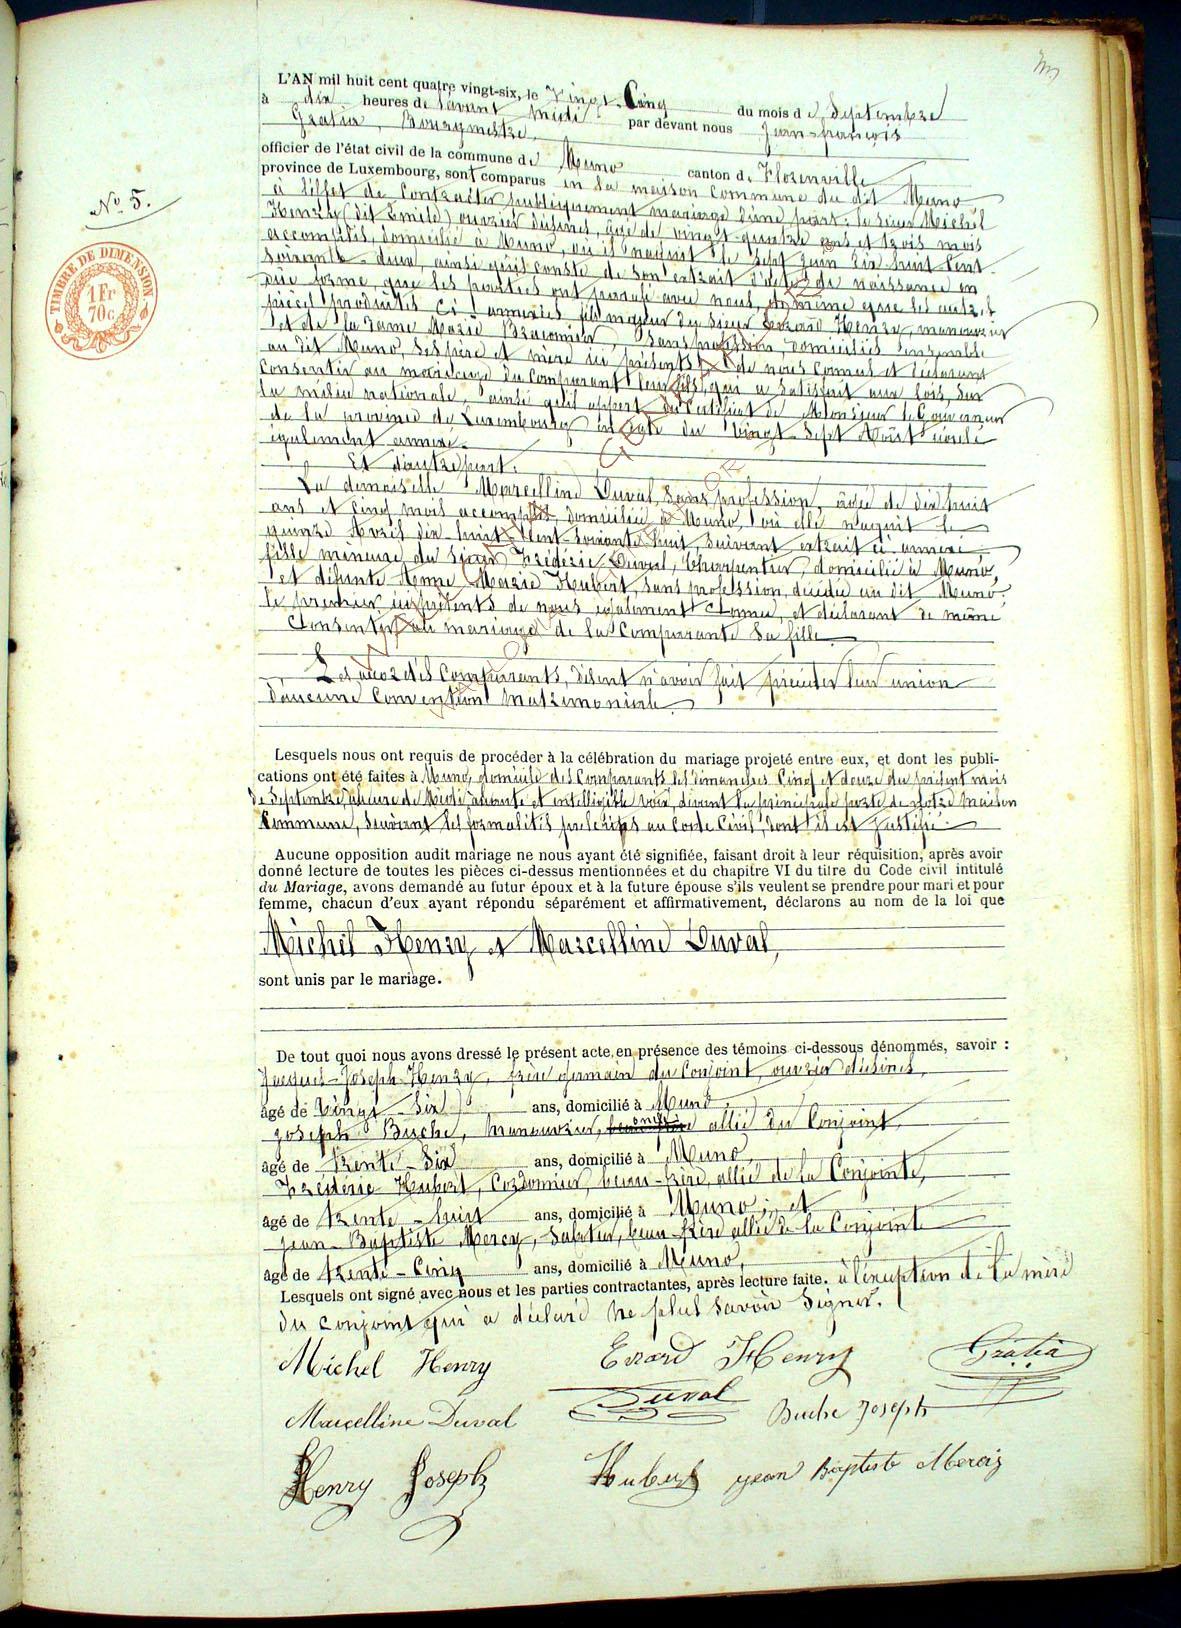 L'AN mil huit cent quatre vingt-six, le Vingt-Cinq du mois de Septembre
à dix heures de l'avant midi par devant nous Jean-françois
Gratia, Bourgmestre,
officier de l'état civil de la commune de Muno canton de Florenville
province de Luxembourg, sont comparus en la maison commune du dit Muno
à l'effet de Contracter publiquement mariage d'une part: le sieur Michel
Henry (dit Emile) ouvrier d'usines, âgé de vingt-quatre ans et trois mois
accomplis, domicilié à Muno, où il naquit le Sept Juin dix huit Cent
soixante-deux, ainsi qu'il conste de son extrait d'acte de naissance en
due forme, que les parties ont paraphé avec nous, de même que les autres
pièces produites Ci-annexées fils majeur du sieur Evrard Henry, manouvrier
et de la Dame Marie Braconnier, Sans profession, domiciliés ensemble
au dit Muno, Ses père et mère ici présents de nous Connus et déclarant
Consentir au mariage du Comparant leur fils, qui a Satisfait aux lois Sur
la milice nationale, ainsi qu'il appert du Certificat de Monsieur le Gouverneur
de la province de Luxembourg en date du Vingt-Sept Août écoulé
également annexé.
Et d'autre part:
La demoiselle Marcelline Duval, Sans profession, âgée de dix huit
ans et Cinq mois accomplis, domiciliée à Muno, où elle naquit le
quinze Avril dix-huit-Cent-Soixante huit, Suivant extrait ci-annexé,
fille mineure du Sieur Frédéric Duval, Charpentier, domicilié à Muno,
et défunte Anne Marie Hubert, Sans profession, décédée au dit Muno.
le premier ici présents de nous également Connu, et déclarant de même
Consentir au mariage de la Comparante Sa fille.
Les deux dits Comparants, disent n'avoir fait précéder leur union
d'aucune Convention Matrimoniale.
Lesquels nous ont requis de procéder à la célébration du mariage projeté entre eux, et dont les publi-
cations ont été faites à Muno, domicile des Comparants les dimanches Cinq et douze du présent mois
de Septembre, à heure de Midi, à haute et intelligible voix, devant la principale porte de notre Maison
Commune, Suivant les formalités prescrites au Code Civil, dont il est Justifié.
Aucune opposition audit mariage ne nous ayant été signifiée, faisant droit à leur réquisition, après avoir
donné lecture de toutes les pièces ci-dessus mentionnées et du chapitre VI du titre du Code civil intitulé
du Mariage, avons demandé au futur époux et à la future épouse s'ils veulent se prendre pour mari et pour
femme, chacun d'eux ayant répondu séparément et affirmativement, déclarons au nom de la loi que
Michel Henry et Marcelline Duval,
sont unis par le mariage.
De tout quoi nous avons dressé le présent acte, en présence des témoins ci-dessous dénommés, savoir :
Jacques-Joseph Henry, frère germain du Conjoint, ouvrier d'usines,
âgé de Vingt-Six ans, domicilié à Muno,
Joseph Buche, Manouvrier, allié du Conjoint,
âgé de trente-Six ans, domicilié à Muno,
Frédéric Hubert, Cordonnier, beau-frère, allié de la Conjointe,
âgé de trente-huit ans, domicilié à Muno; et
Jean-Baptiste Mercy, Sabotier, beau-frère allié de la Conjointe
âgé de trente-Cinq ans, domicilié à Muno,
Lesquels ont signé avec nous et les parties contractantes, après lecture faite. à l'exception de la mère
du conjoint qui a déclaré ne plus savoir signer.
Michel Henry Evrard Henry Gratia
Marcelline Duval Duval Buche Joseph
Henry Joseph Hubert Jean Baptiste
No. 5.
TIMBRE DE DIMENSION
1 Fr
70c